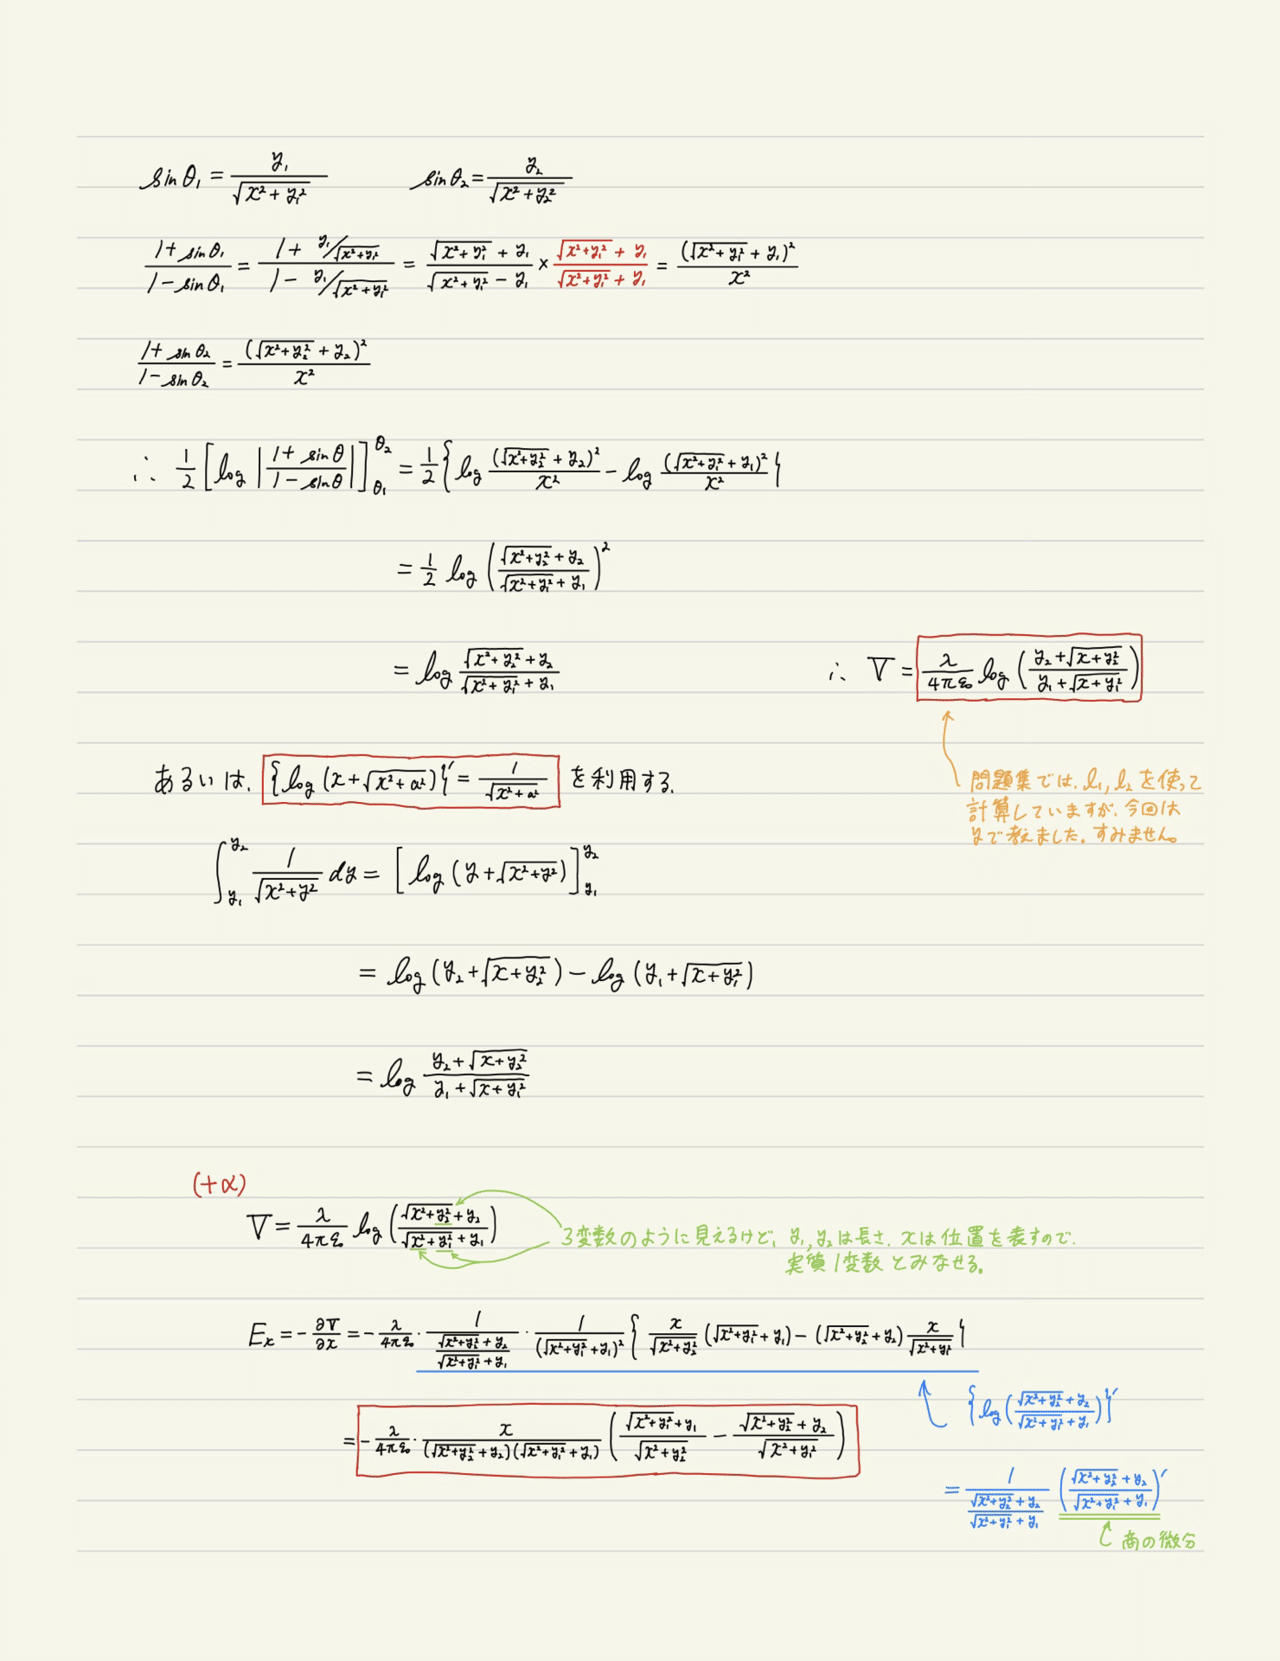 sinθ₁ = y₁/√(x²+y₁²)    sinθ₂ = y₂/√(x²+y₂²)
(1+sinθ₁)/(1−sinθ₁) = (1 + y₁/√(x²+y₁²))/(1 − y₁/√(x²+y₁²)) = (√(x²+y₁²) + y₁)/(√(x²+y₁²) − y₁) × (√(x²+y₁²) + y₁)/(√(x²+y₁²) + y₁) = (√(x²+y₁²) + y₁)²/x²
(1+sinθ₂)/(1−sinθ₂) = (√(x²+y₂²) + y₂)²/x²
∴ 1/2 [log |(1+sinθ)/(1−sinθ)|]_θ₁^θ₂ = 1/2 {log (√(x²+y₂²) + y₂)²/x² − log (√(x²+y₁²) + y₁)²/x²}
= 1/2 log ((√(x²+y₂²) + y₂)/(√(x²+y₁²) + y₁))²
= log (√(x²+y₂²) + y₂)/(√(x²+y₁²) + y₁)    ∴ V = λ/4πε₀ log ((y₂+√(x+y₂²))/(y₁+√(x+y₁²)))
あるいは、{log (x+√(x²+a²))}' = 1/√(x²+a²) を利用する。
問題集では、l₁, l₂ を使って
計算していますが、今回は
yで考えました。すみません。
∫_y₁^y₂ 1/√(x²+y²) dy = [log (y+√(x²+y²))]_y₁^y₂
= log (y₂+√(x+y₂²)) − log (y₁+√(x+y₁²))
= log (y₂+√(x+y₂²))/(y₁+√(x+y₁²))
(+α)
V = λ/4πε₀ log ((√(x²+y₂²) + y₂)/(√(x²+y₁²) + y₁))
3変数のように見えるけど、y₁, y₂は長さ、xは位置を表すので、
実質1変数とみなせる。
Eₓ = −∂V/∂x = −λ/4πε₀ · 1/((√(x²+y₂²) + y₂)/(√(x²+y₁²) + y₁)) · 1/(√(x²+y₁²) + y₁)² {x/√(x²+y₂²) (√(x²+y₁²) + y₁) − (√(x²+y₂²) + y₂) x/√(x²+y₁²)}
{log((√(x²+y₂²) + y₂)/(√(x²+y₁²) + y₁))}'
= −λ/4πε₀ · x/((√(x²+y₂²) + y₂)(√(x²+y₁²) + y₁)) ((√(x²+y₁²) + y₁)/√(x²+y₂²) − (√(x²+y₂²) + y₂)/√(x²+y₁²))
= 1/((√(x²+y₂²) + y₂)/(√(x²+y₁²) + y₁)) ((√(x²+y₂²) + y₂)/(√(x²+y₁²) + y₁))'
商の微分